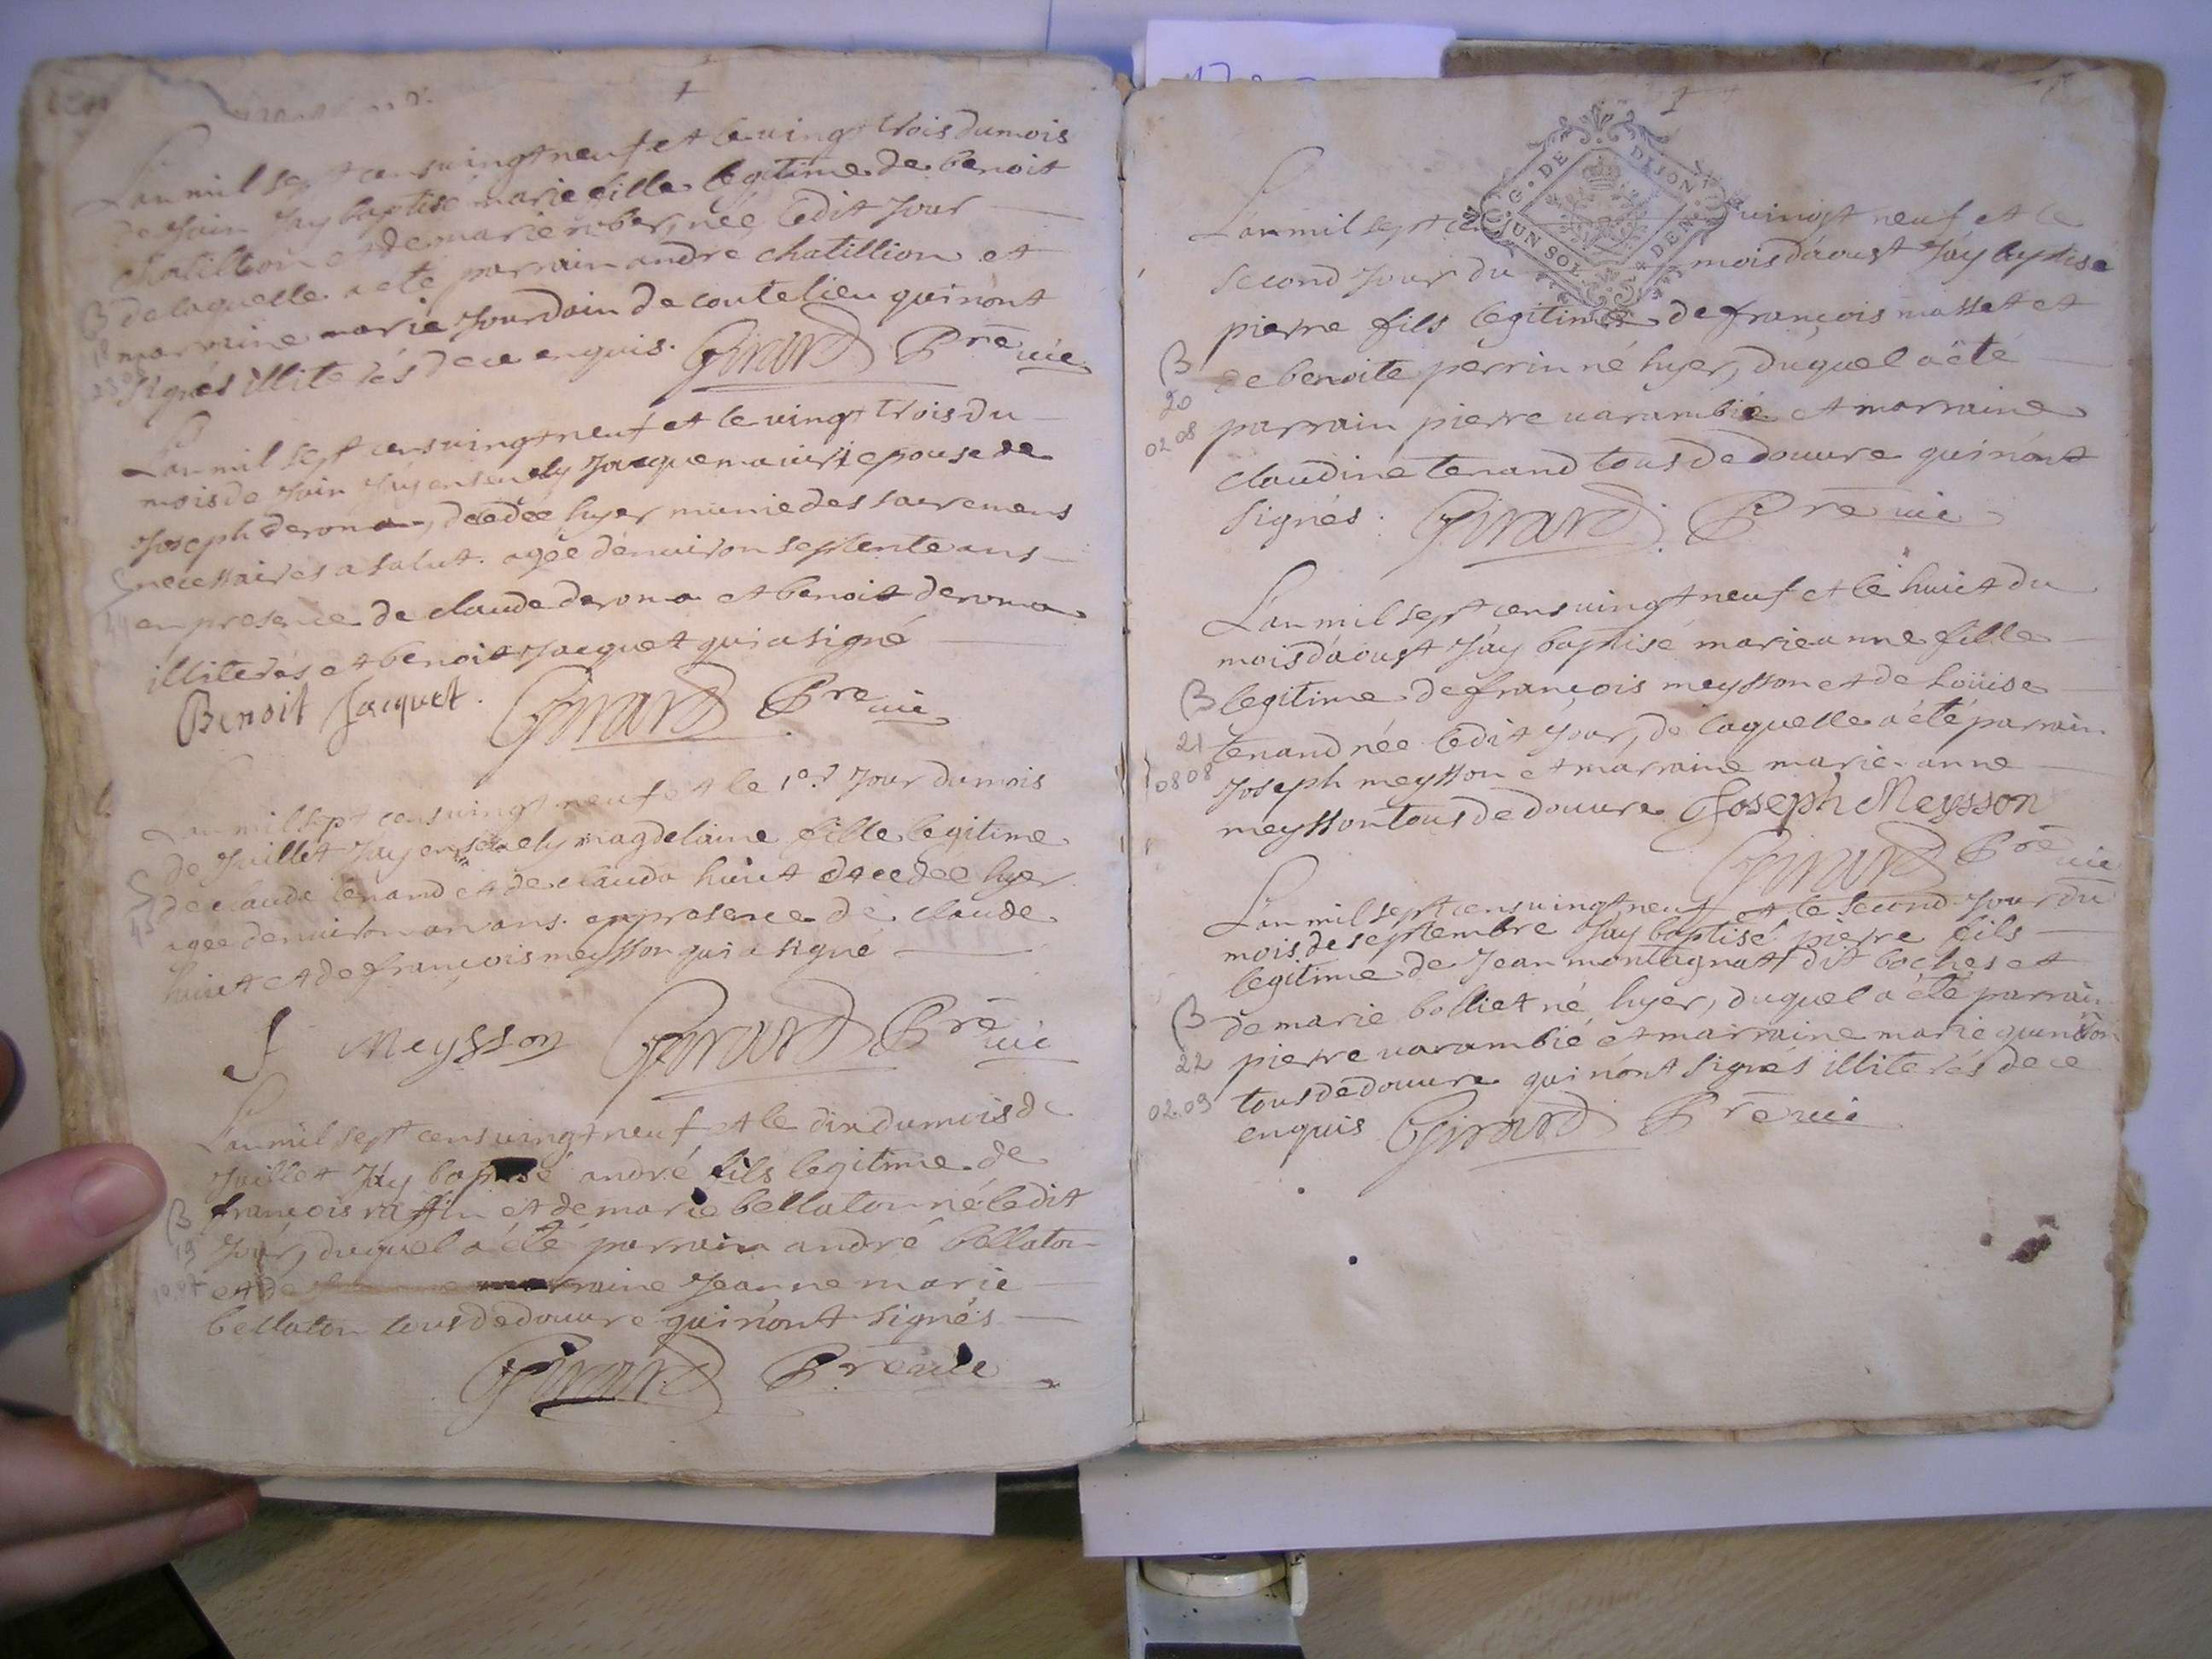 Lan mil sept cens vingt neuf et le vingt trois du mois
de Juin Jáy baptisé marie fille legitime de benoit
chatillion et de marie rober, née ledit Jour
B de laquelle a été parrain andré chatillion et
marraine marie Jourdain de coutelieu qui nónt
signés illiterés de ce enquis. Girard Pre vic
Lan mil sept cens vingt neuf et le vingt trois du
mois de Juin Jáy ensevely Jacquema epouse de
Joseph deroma, décédée hyer munie des sacremens
S necessaires a salut. agée dénviron septente ans
en presence de claude deroma et benoit deroma
illiterés et benoit Jacquet qui a signé
Benoit Jacquet. Girard Pre vic
Lan mil sept cens vingt neuf et le 1er Jour du mois
de Juillet Jay ensevely magdelaine fille legitime
S de claude tenand et de clauda huict decedée hyer
agée denviron ans. en presence de claude
huict et de françois meysson qui a signé
f Meysson Girard Pre vic
Lan mil sept cens vingt neuf et le dix du mois de
Juillet Jáy baptisé andré fils legitime de
B françois raffin et de marie bellaton né ledit
19 Jour, duquel a été parrain andré bellaton
10.07 et de marraine Jeanne marie
bellaton tous de douvre qui nónt signés
Girard Pre vic
G. DE DIJON
UN SOL DEN
Lan mil sept cens vingt neuf et le
second Jour du mois dáoust Jáy baptisé
pierre fils legitime de françois massat et
B de benoite perrin né hyer, duquel a été
20 parrain pierre varambié et marraine
02 08 claudine tenand tous de douvre qui nónt
signés. Girard. Pre vic
Lan mil sept cens vingt neuf et le huict du
mois dáoust Jáy baptisé marie anne fille
B legitime de françois meysson et de Loüise
21 tenand née ledit Jour, de laquelle a été parrain
08 08 Joseph meysson et marraine marie anne
meysson tous de douvre Joseph Meysson
Girard Pre vic
Lan mil sept cens vingt neuf et le second Jour du
mois de septembre Jáy baptisé pierre fils
legitime de Jean montagnat dit boches et
B de marie bolliet né hyer, duquel a été parrain
22 pierre varambié et marraine marie
02.09 tous de douvre qui nónt signés illiterés de ce
enquis Girard Pre vic